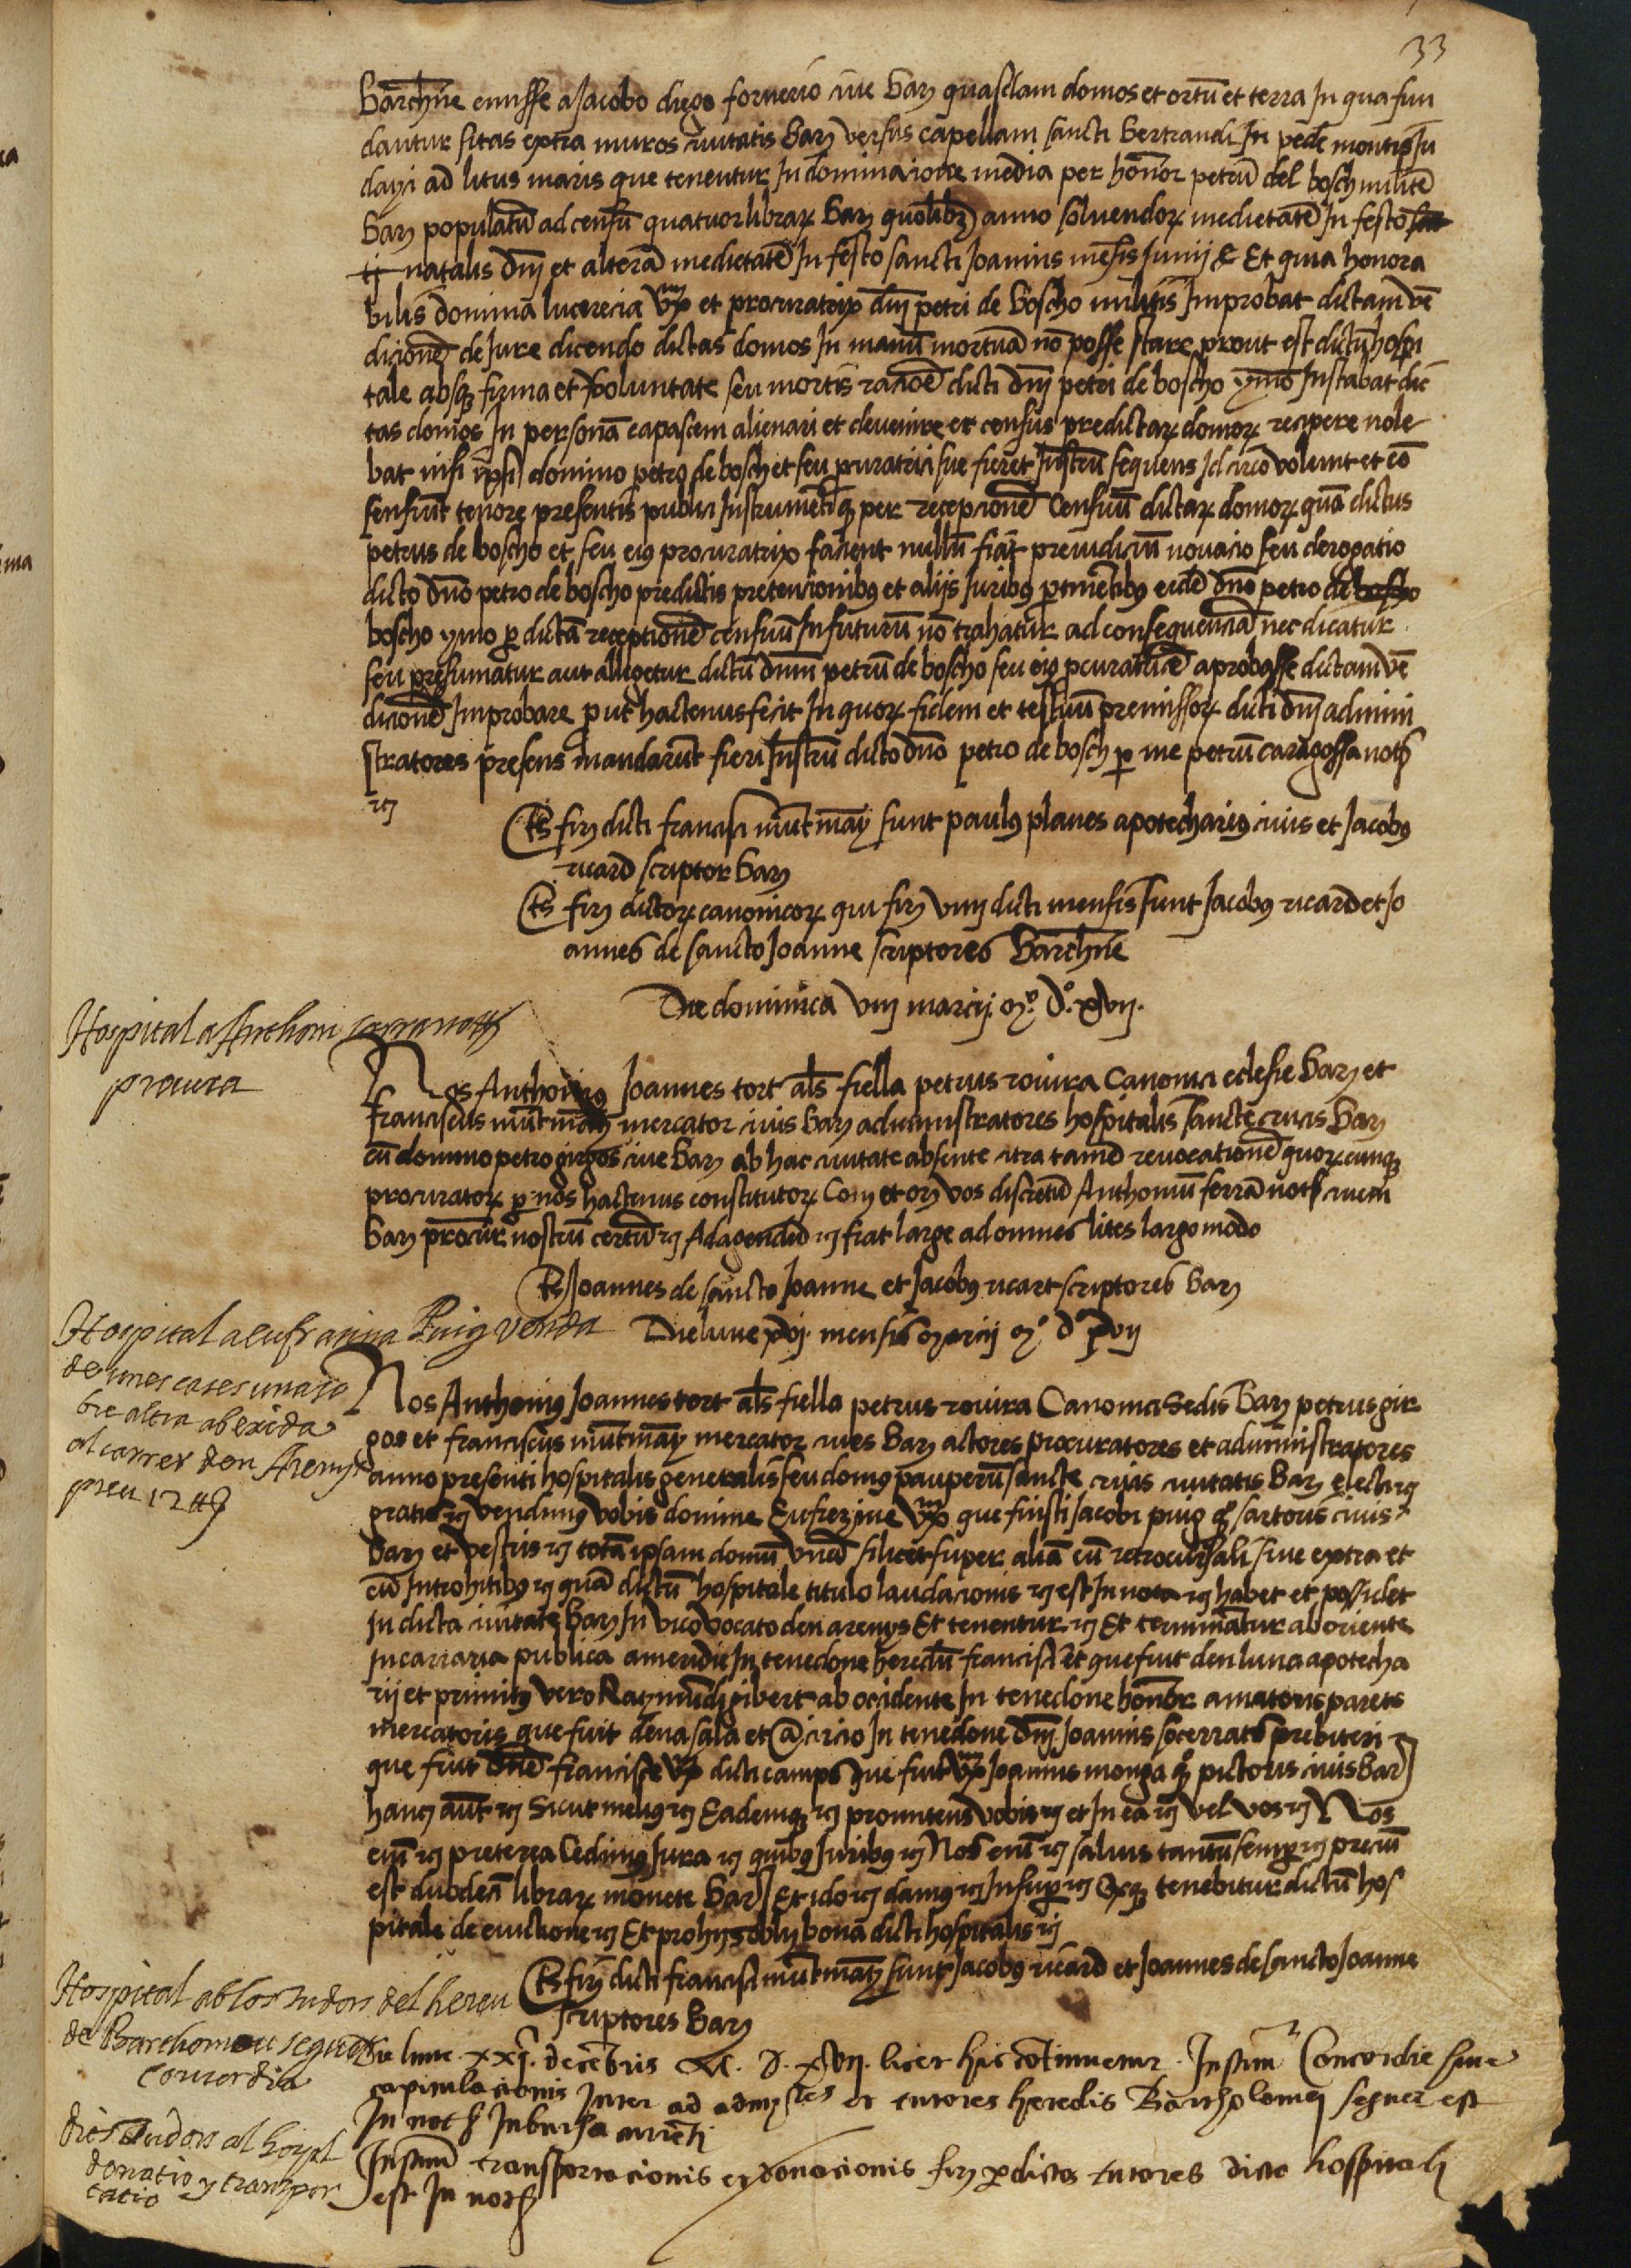 33
Barchñe emisse a Jacobo diego fornerio cive Barñ quasdam domos et ortũ et terra in qua fun
dantur sitas extra muros civitatis Barñ versus capellam sancti Bertrandi in pede montis Ju
dayci ad litus maris que tenentur in dominacione media per honor petrũ del bosch militẽ
Barñ populatũ ad censũ quatuor librar Barñ quolibet anno solvendor medietatẽ in festo
natalis dñi et alterã medietatẽ in festo sancti Joannis mẽsis Junij & Et quia honora
bilis domina lucrecia uxor et procuratrix dñi petri de boscho militis improbat dictam vẽ
dicionẽ de jure dicendo dictas domos in manũ mortuã nõ posse stare prout est dictũ hospi
tale absq firma et voluntate seu mortis racioẽ dicti dñi petri de boscho ymo instabat dic
tas domos in personã capascem alienari et devenire et census predictar domor recipere nole
bat nisi ipsi domino petro de bosch et seu procuratrici sue fieret instrũ sequens idcirco volunt et cõ
senciunt tenore presentis publici instrumẽti q per recepcionẽ censuũ dictar domor quã dictus
petrus de boscho et seu eius procuratrix facient nullũ fiat preiudiciũ novacio seu derogatio
dicto dño petro de boscho predictis pretencionibus et alijs juribus ptinẽtibus eidẽ dño petro de boscho
boscho ymo p dictã receptionẽ censuũ in futurũ nõ trahatur ad consequenciã nec dicatur
seu presumatur aut allegetur dictũ dñm petrũ de boscho seu eius pcuratricẽ aprobasse dictam vẽ
dicionẽ improbare put hactenus fecit in quor fidem et testiuũ premissor dicti dñi admini
stratores presens mandarũt fieri instrũ dicto dño petro de bosch p me petrũ caragossa notm
&c
Ts firm dicti francisci mũtmany sunt paulus planes apotecharius civis et Jacobus
ricard scriptor Barñ
Ts firm dictor canonicor qui firm viiij dicti mensis sunt Jacobus ricard et Jo
annes de sancto Joanne scriptores Barchñe
Die dominica viij marcij Mº. Dº. xvij.
Hospital a Anthoni serra notari
procura
Nos Anthonius Joannes tort als fiella petrus rovira Canonici eclesie Barñ et
franciscus mũtmany mercator civis Barñ administratores hospitalis sancte crucis Barñ
cũ domino petro girgos cive Barñ ab hac civitate absente citra tamẽ revocationẽ quorcunq
procurator p nos hactenus constitutor Com et orñ vos discretũ Anthoniũ serrã notm civem
Barñ procur nostrũ certũ &c Ad agendũ &c fiat large ad omnes lites largo modo
Ts Joannes de sancto Joanne et Jacobus ricart scriptores Barñ
Hospital a eufraxina Puig venda
de unes cases una so
bre altra ab exida
al carrer den Arenys
preu 12 ℔
Die lune xvj. mensis Marcij Mº dº xvij
Nos Anthonius Joannes tort als fiella petrus rovira Canonici Sedis Barñ petrus gir
gos et franciscus mũtmany mercator cives Barñ actores procuratores et administratores
anno presenti hospitalis generalis seu domus pauperũ sancte crucis civitatis Barñ electi &c
gratis &c vendimus vobis domine Eufrexine uxor que fuisti Jacobi puig q sartoris civis
Barñ et vestris &c totã ipsam domũ unã silicet super aliã cũ retrocursali sive extra et
cũ introhitibus &c quã dictũ hospitale titulo laudacionis &c est in nota &c habet et possidet
in dicta civitate Barñ in vico vocato den arenys Et tenentur &c Et terminatur ab oriente
in carraria publica a meridie in tenedone heredũ francisci et que fuit den luna apotecha
rij et primitus vero Raymũdi gibert ab occidente in tenedone honor amatoris parets
mercatoris que fuit dena sala et a circio in tenedone dñi Joannis socerrats prebiteri
que fuit dñe francisce uxor dicti camps que fuit uxor Joannis monga q pictoris civis Bar
hanc aut &c Sicut melius &c Eademq &c promitens vobis &c et in ea &c vel vos &c Nos
enĩ &c preterea Cedimus jura &c quibus juribus &c Nos enĩ &c salvis tantũ semp &c preciũ
est duodeci librar monete Bar Et ideo &c damus &c insuper &c Q tenebitur dictũ hos
pitale de evictione &c Et pro hijs oblig bona dicti hospitalis &c
Ts firm dicti francisci mũtmany sunt Jacobus ricard et Joannes de sancto Joanne
scriptores Barñ
Hospital ab los tudors del hereu
de Barthomeu seguer
Concordia
Die lune .xxj. decẽbris M. D. xvij. licet hic cõtinuetur. Instrm Concordie sive
capitulacionis inter ad admistres et tutores heredis Bartholomei seguer est
in noth in bursa currẽti
dits tudors al hospital
donatio y transpor
tatio
Instrm transportacionis e donacionis firm p dictos tutores dicto hospitali
est in noth